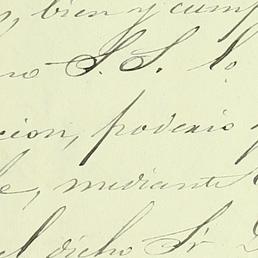 , bien y cump
no S. S. lo
cion, poderio y
le, mediante
el dicho Sr D